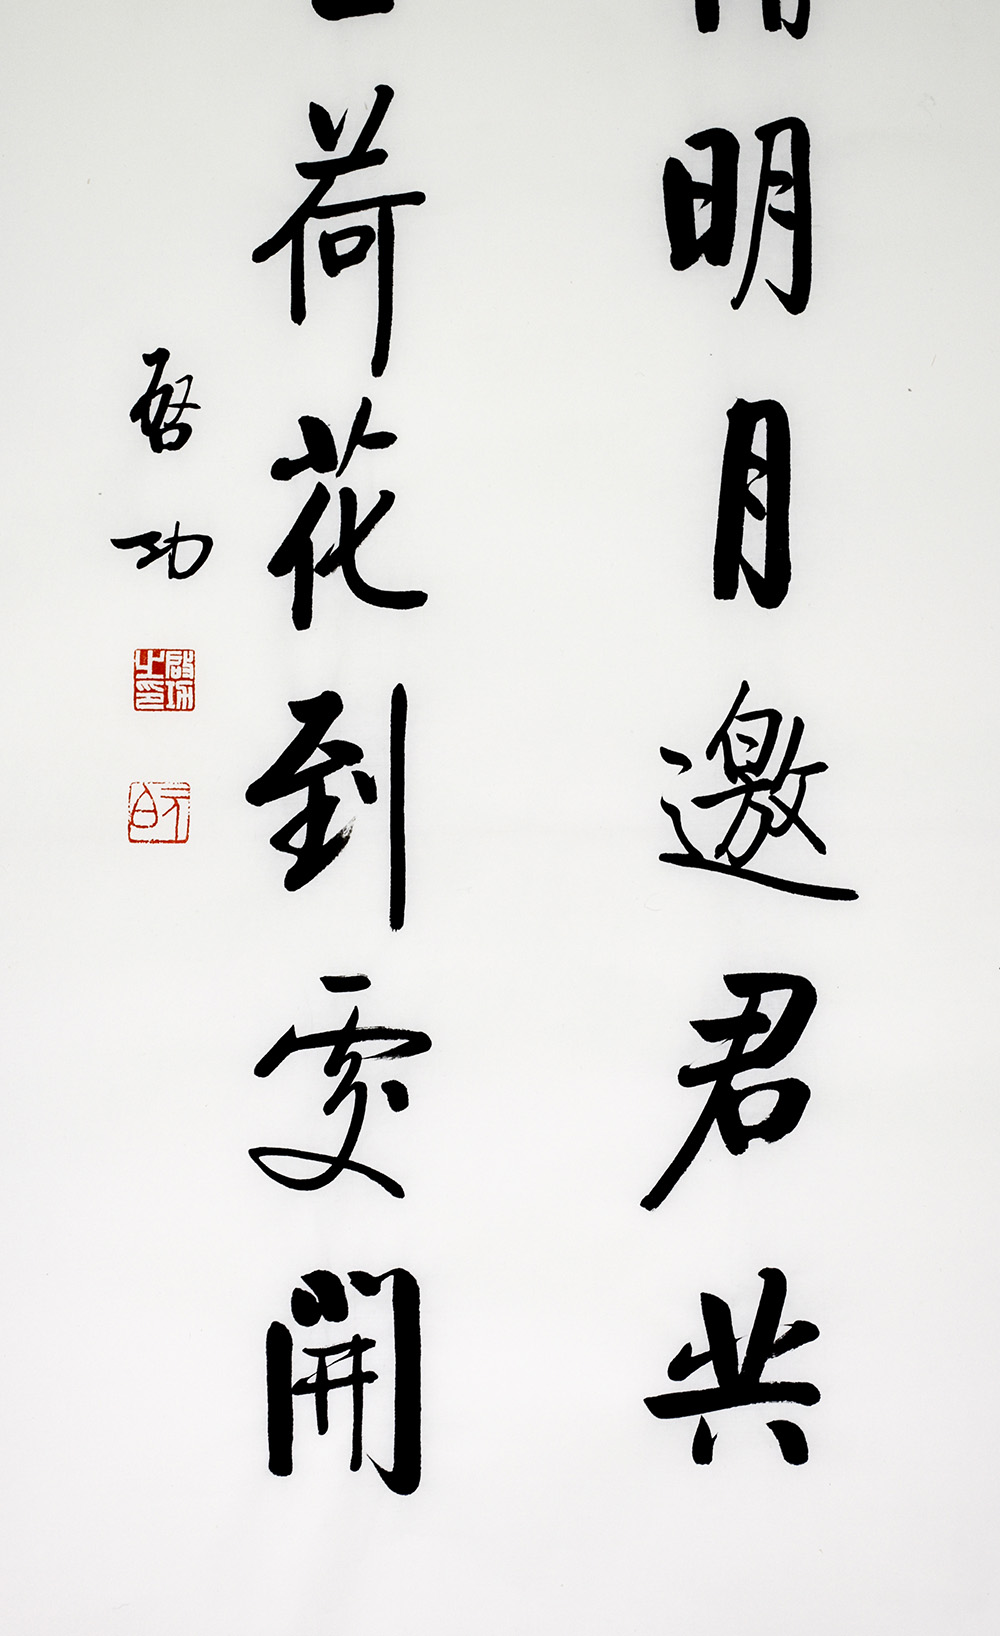 明月邀君共
荷花到處開
啓功
啟功之印
元白